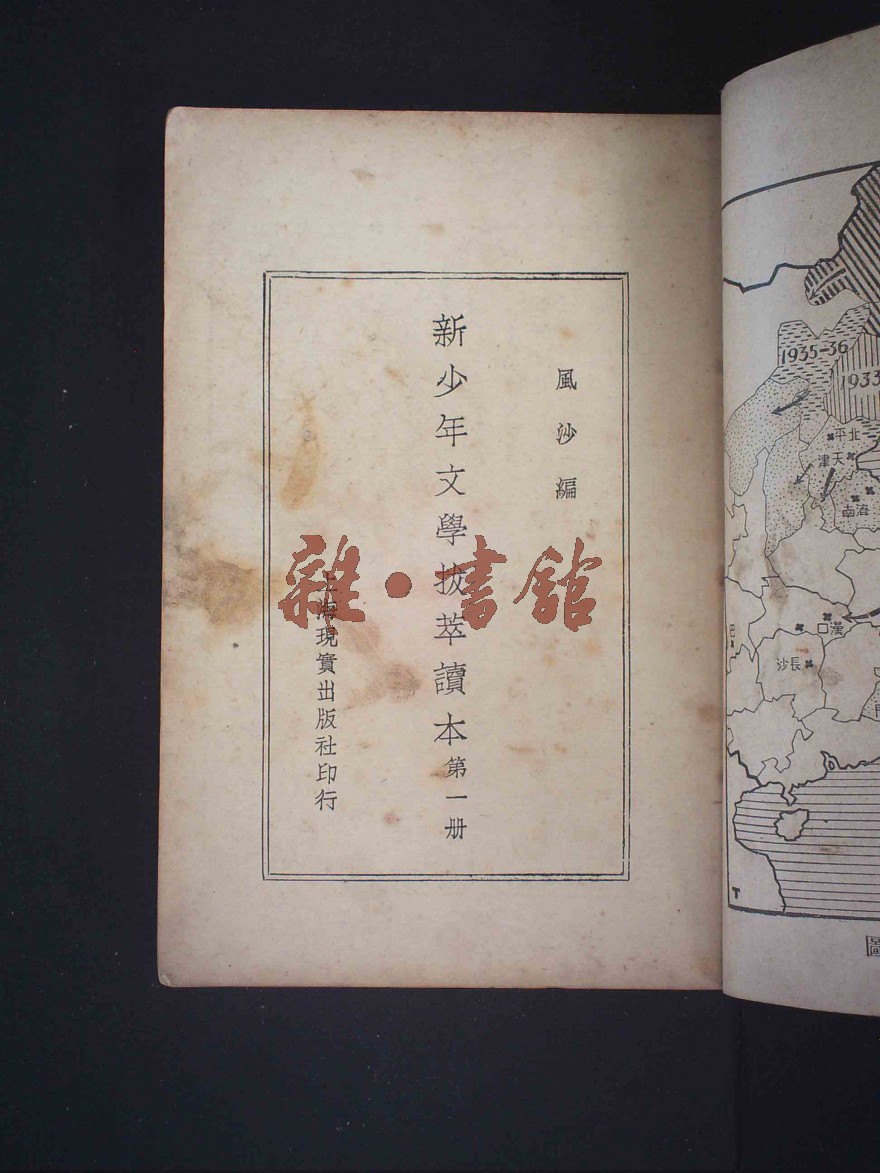 風沙編
新少年文學拔萃讀本 第一册
上海現實出版社印行
雜·書館
1935-36
1933
北平
天津
濟南
漢口
長沙
圖